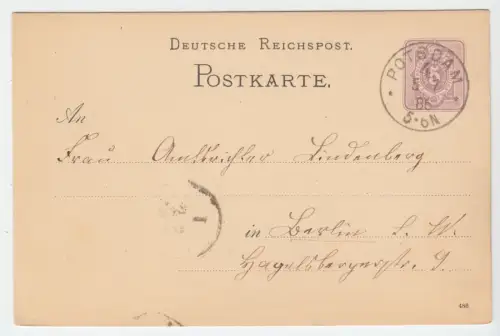 DEUTSCHE REICHSPOST.
POSTKARTE.
POTSDAM
5 7
86
5-6N
An
Frau Amtsrichter Lindenberg
in Berlin S. W.
Hagelsbergerstr. 9.
486